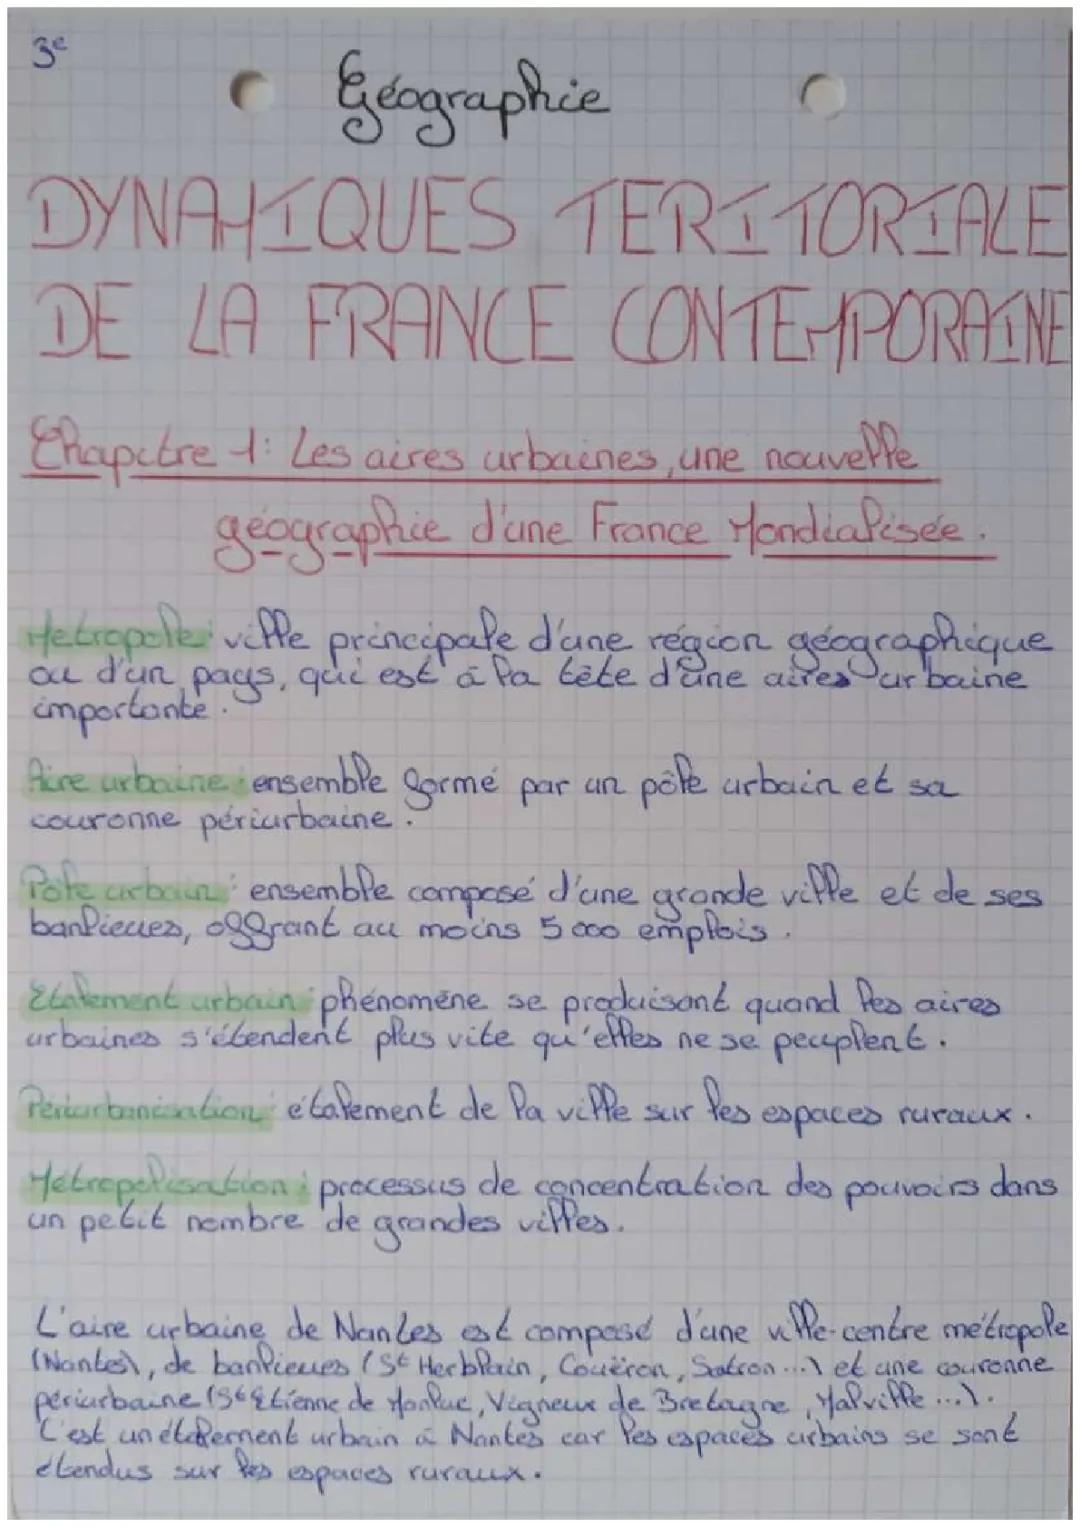 3e
Géographie
DYNAMIQUES TERITORIALE
DE LA FRANCE CONTEMPORAINE
Chapitre 1: Les aires urbaines, une nouvelle
géographie d'une France Mondialisée.
Métropole: ville principale d'une région géographique
ou d'un pays, qui est à la tête d'une aires urbaine
importante.
Aire urbaine: ensemble formé par un pôle urbain et sa
couronne périurbaine.
Pôle urbain: ensemble composé d'une grande ville et de ses
banlieues, offrant au moins 5 000 emplois.
Etalement urbain: phénomène se produisant quand les aires
urbaines s'étendent plus vite qu'elles ne se peuplent.
Périurbanisation: étalement de la ville sur les espaces ruraux.
Métropolisation: processus de concentration des pouvoirs dans
un petit nombre de grandes villes.
L'aire urbaine de Nantes est composé d'une ville-centre métropole
(Nantes), de banlieues (St Herblain, Couëron, Sautron...) et une couronne
périurbaine (St Etienne de Monluc, Vigneux de Bretagne, Malville...).
C'est un étalement urbain à Nantes car les espaces urbains se sont
étendus sur les espaces ruraux.